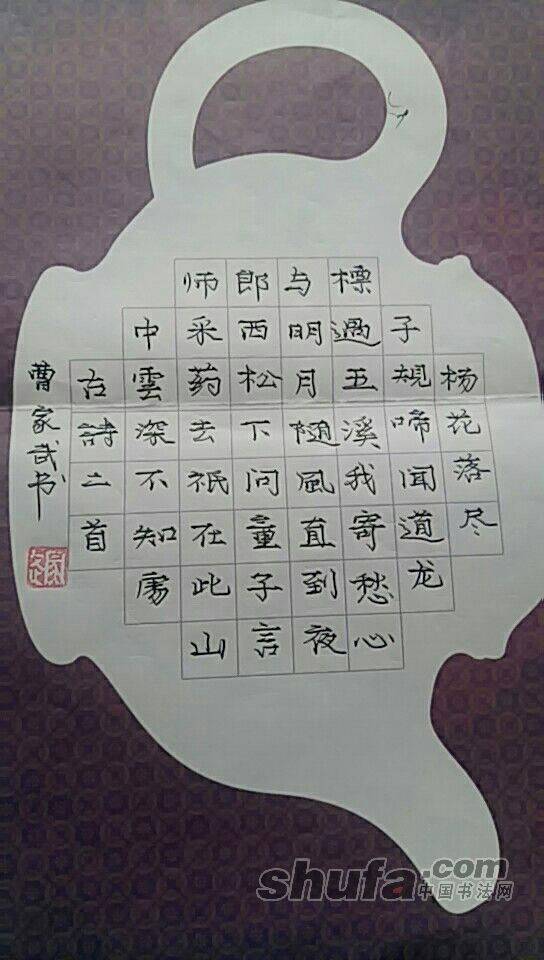 杨花落尽
子規啼聞道龙
標過五溪我寄愁心
与明月随風直到夜
郎西松下问童子言
师采药去祇在此山
中雲深不知處
古詩二首
曹家武书
shufa.com
中国书法网